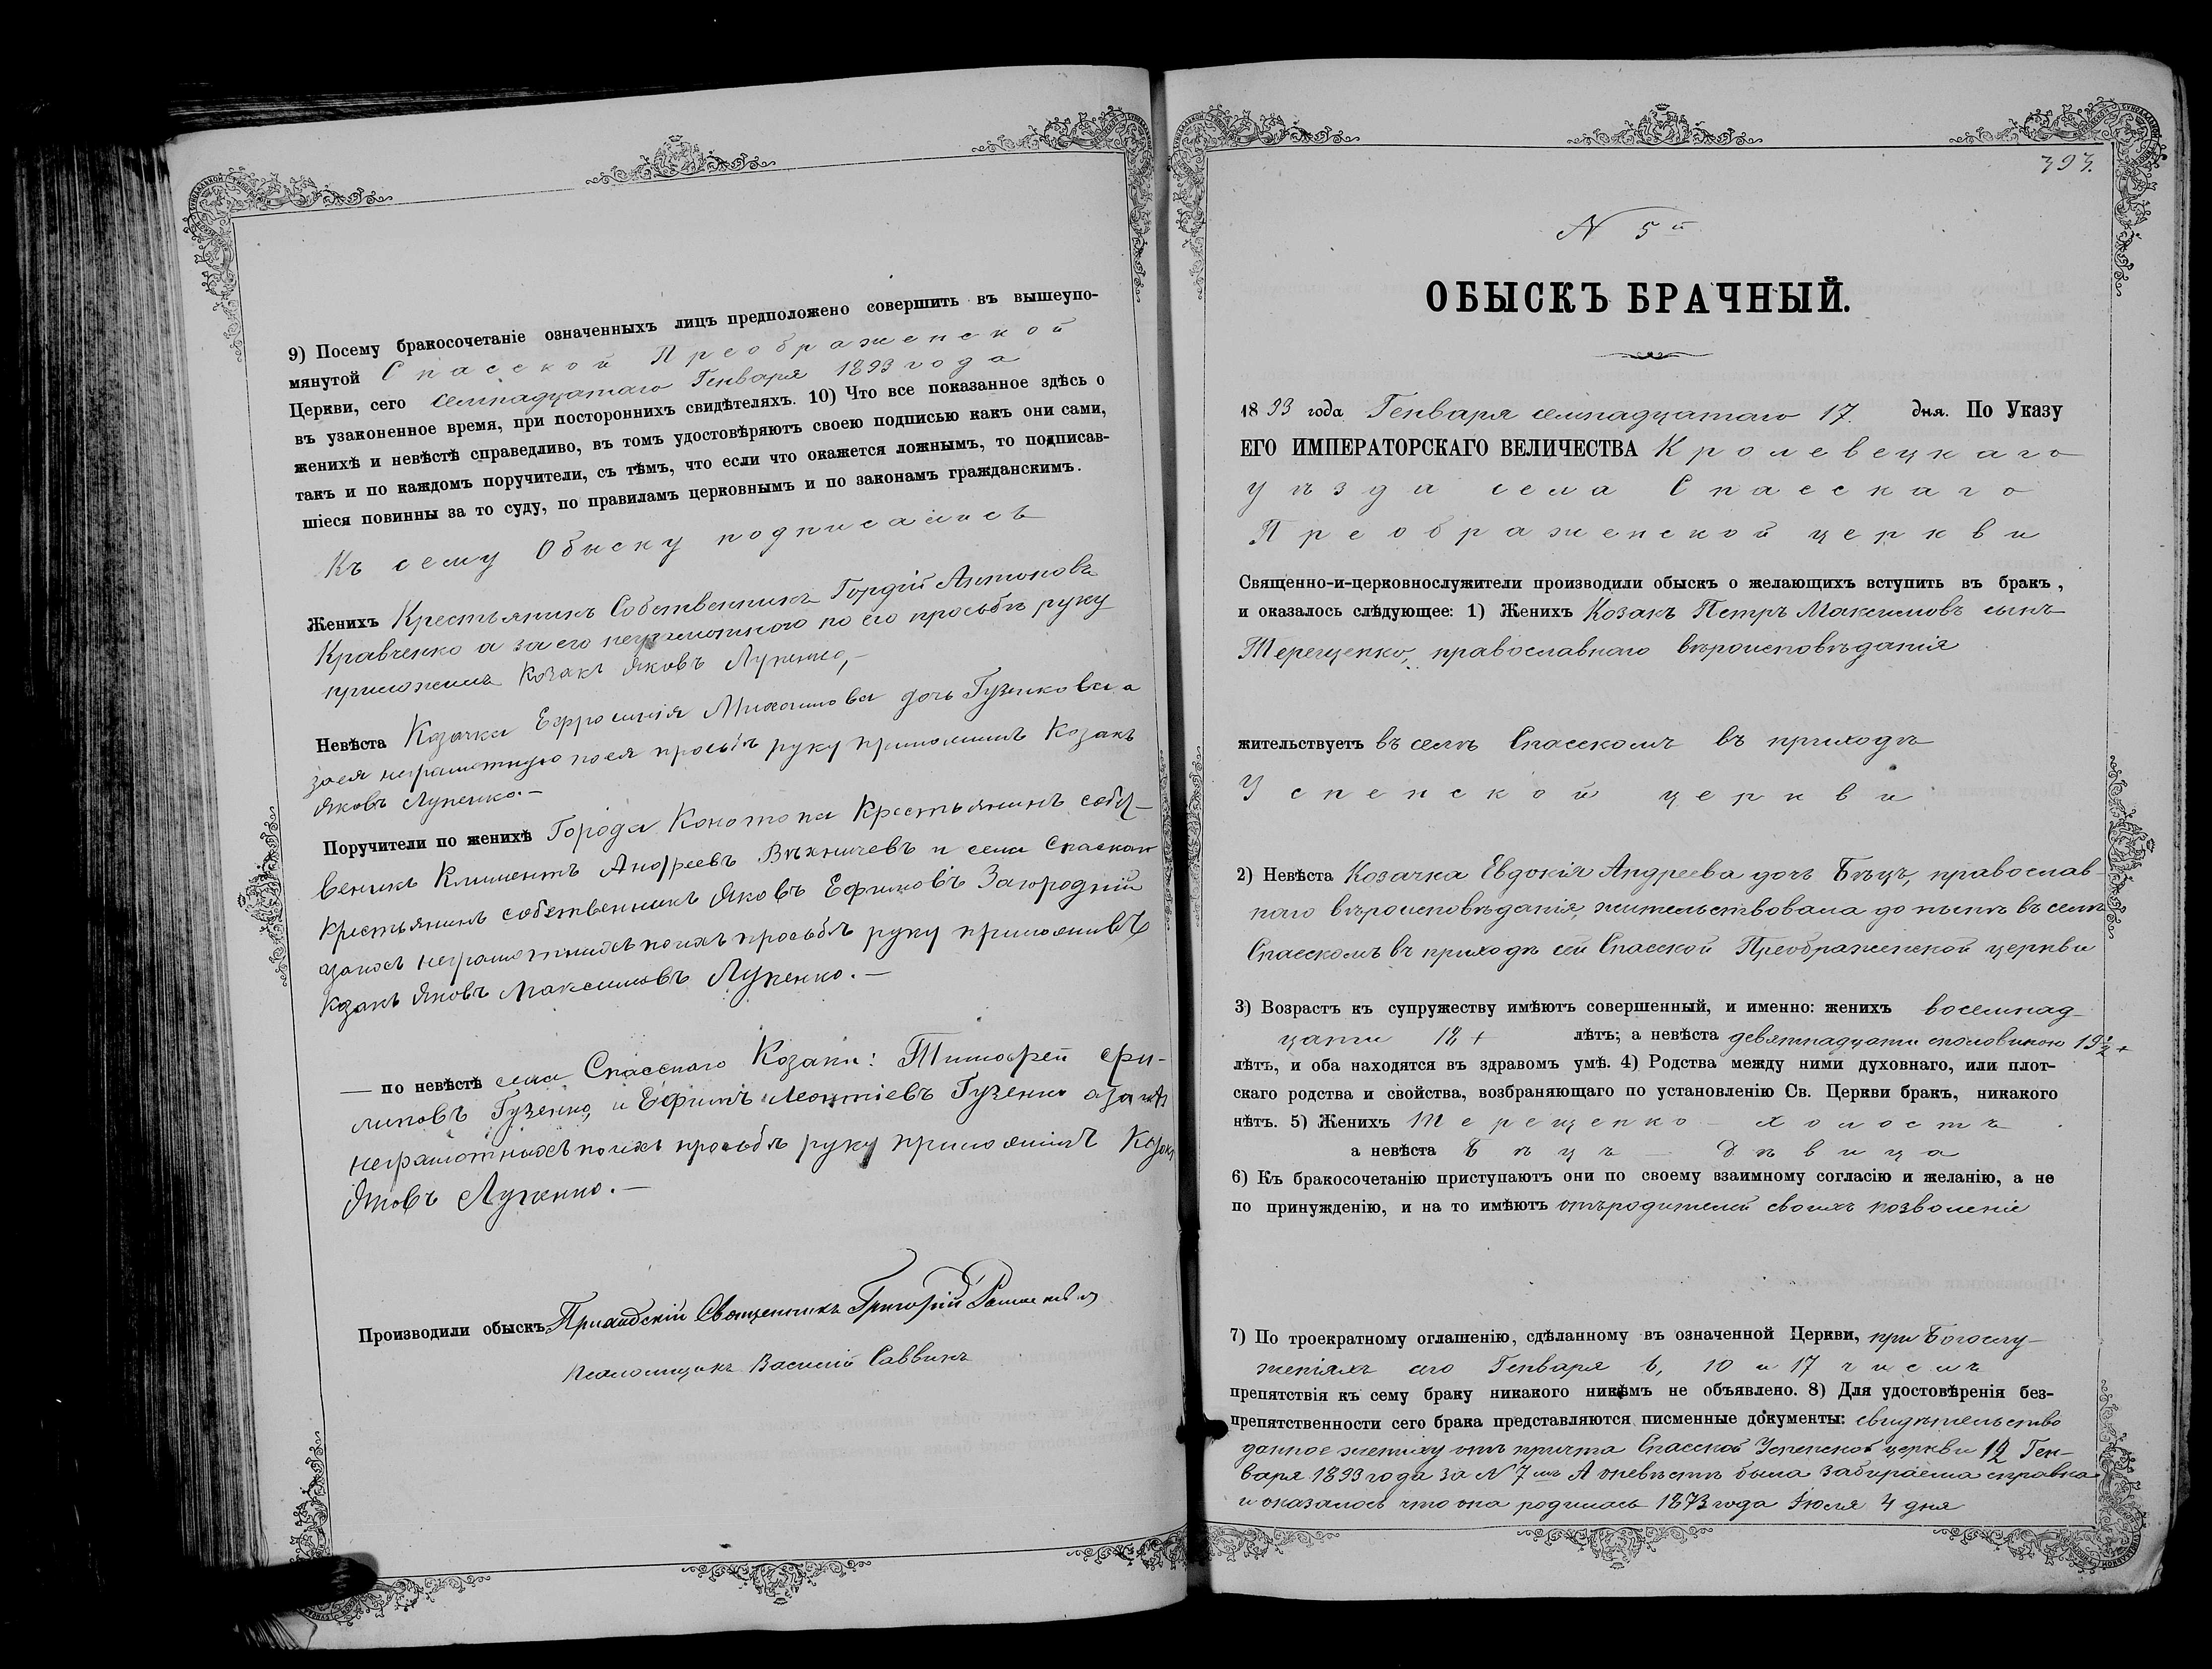 9) Посему бракосочетаніе означенныхъ лицъ предположено совершить въ вышеупо-
мянутой Спасской Преображенской
Церкви, сего семнадцатаго Генваря 1893 года
въ узаконенное время, при постороннихъ свидѣтеляхъ. 10) Что все показанное здѣсь о
женихѣ и невѣстѣ справедливо, въ томъ удостовѣряютъ своею подписью какъ они сами,
такъ и по каждомъ поручители, съ тѣмъ, что если что окажется ложнымъ, то подписав-
шіеся повинны за то суду, по правиламъ церковнымъ и по законамъ гражданскимъ.
Къ сему Обыску подписались
Женихъ Крестьянинъ Собственникъ Гордій Антоновъ
Кравченко а за его неграмотного по его просьбѣ руку
приложилъ Козакъ Яковъ Лупенко,-
Невѣста Козачка Ефросинія Михаилова дочь Гузенкова а
за ея неграмотную по ея просьбѣ руку приложилъ Козакъ
Яковъ Лупенко.-
Поручители по женихѣ Города Конотопа Крестьянинъ собст-
веникъ Климентъ Андреевъ и села Спаскаго
Крестьянинъ собственникъ Яковъ Ефимовъ Загородній
а за ихъ неграмотныхъ по ихъ просьбѣ руку приложилъ
Козакъ Яковъ Максимовъ Лупенко.-
— по невѣстѣ села Спасскаго Козаки: Тимофей Фи-
липовъ Гузенко, и Ефимъ Леонтіевъ Гузенко а за ихъ
неграмотныхъ по ихъ просьбѣ руку приложилъ Козакъ
Яковъ Лупенко.-
Производили обыскъ Приходскій Священникъ Григорій
Псаломщикъ Василій Саввинъ
393.
N 5й
ОБЫСКЪ БРАЧНЫЙ.
1893 года Генваря семнадцатаго 17. дня. По Указу
ЕГО ИМПЕРАТОРСКАГО ВЕЛИЧЕСТВА Кролевецкаго
уѣзда села Спасскаго
Преображенской церкви
Священно-и-церковнослужители производили обыскъ о желающихъ вступить въ бракъ,
и оказалось слѣдующее: 1) Женихъ Козакъ Петръ Максимовъ сынъ
Терещенко, православнаго вѣроисповѣданія
жительствуетъ въ селѣ Спасскомъ въ приходѣ
Успенской церкви
2) Невѣста Козачка Евдокія Андреева дочь Бѣцъ, православ-
наго вѣроисповѣданія, жительствовала до нынѣ въ селѣ
Спасскомъ въ приходѣ сей Спасской Преображенской церкви
3) Возрастъ къ супружеству имѣютъ совершенный, и именно: женихъ восемнад-
цати 18 + лѣтъ; а невѣста девятнадцати споловиною 19½ +
лѣтъ, и оба находятся въ здравомъ умѣ. 4) Родства между ними духовнаго, или плот-
скаго родства и свойства, возбраняющаго по установленію Св. Церкви бракъ, никакого
нѣтъ. 5) Женихъ Терещенко - холостъ
а невѣста Бѣцъ — дѣвица
6) Къ бракосочетанію приступаютъ они по своему взаимному согласію и желанію, а не
по принужденію, и на то имѣютъ отъ родителей своихъ позволеніе
7) По троекратному оглашенію, сдѣланному въ означенной Церкви, при Богослу-
женіяхъ сего Генваря 6, 10 и 17 числъ
препятствія къ сему браку никакого никѣмъ не объявлено. 8) Для удостовѣренія без-
препятственности сего брака представляются писменные документы: свидѣтельство
данное жениху отъ причта Спасской Успенской церкви 12 Ген-
варя 1893 года за N 7мъ А о невѣстѣ была забираема справка
и оказалось что она родилась 1873 года Іюля 4 дня